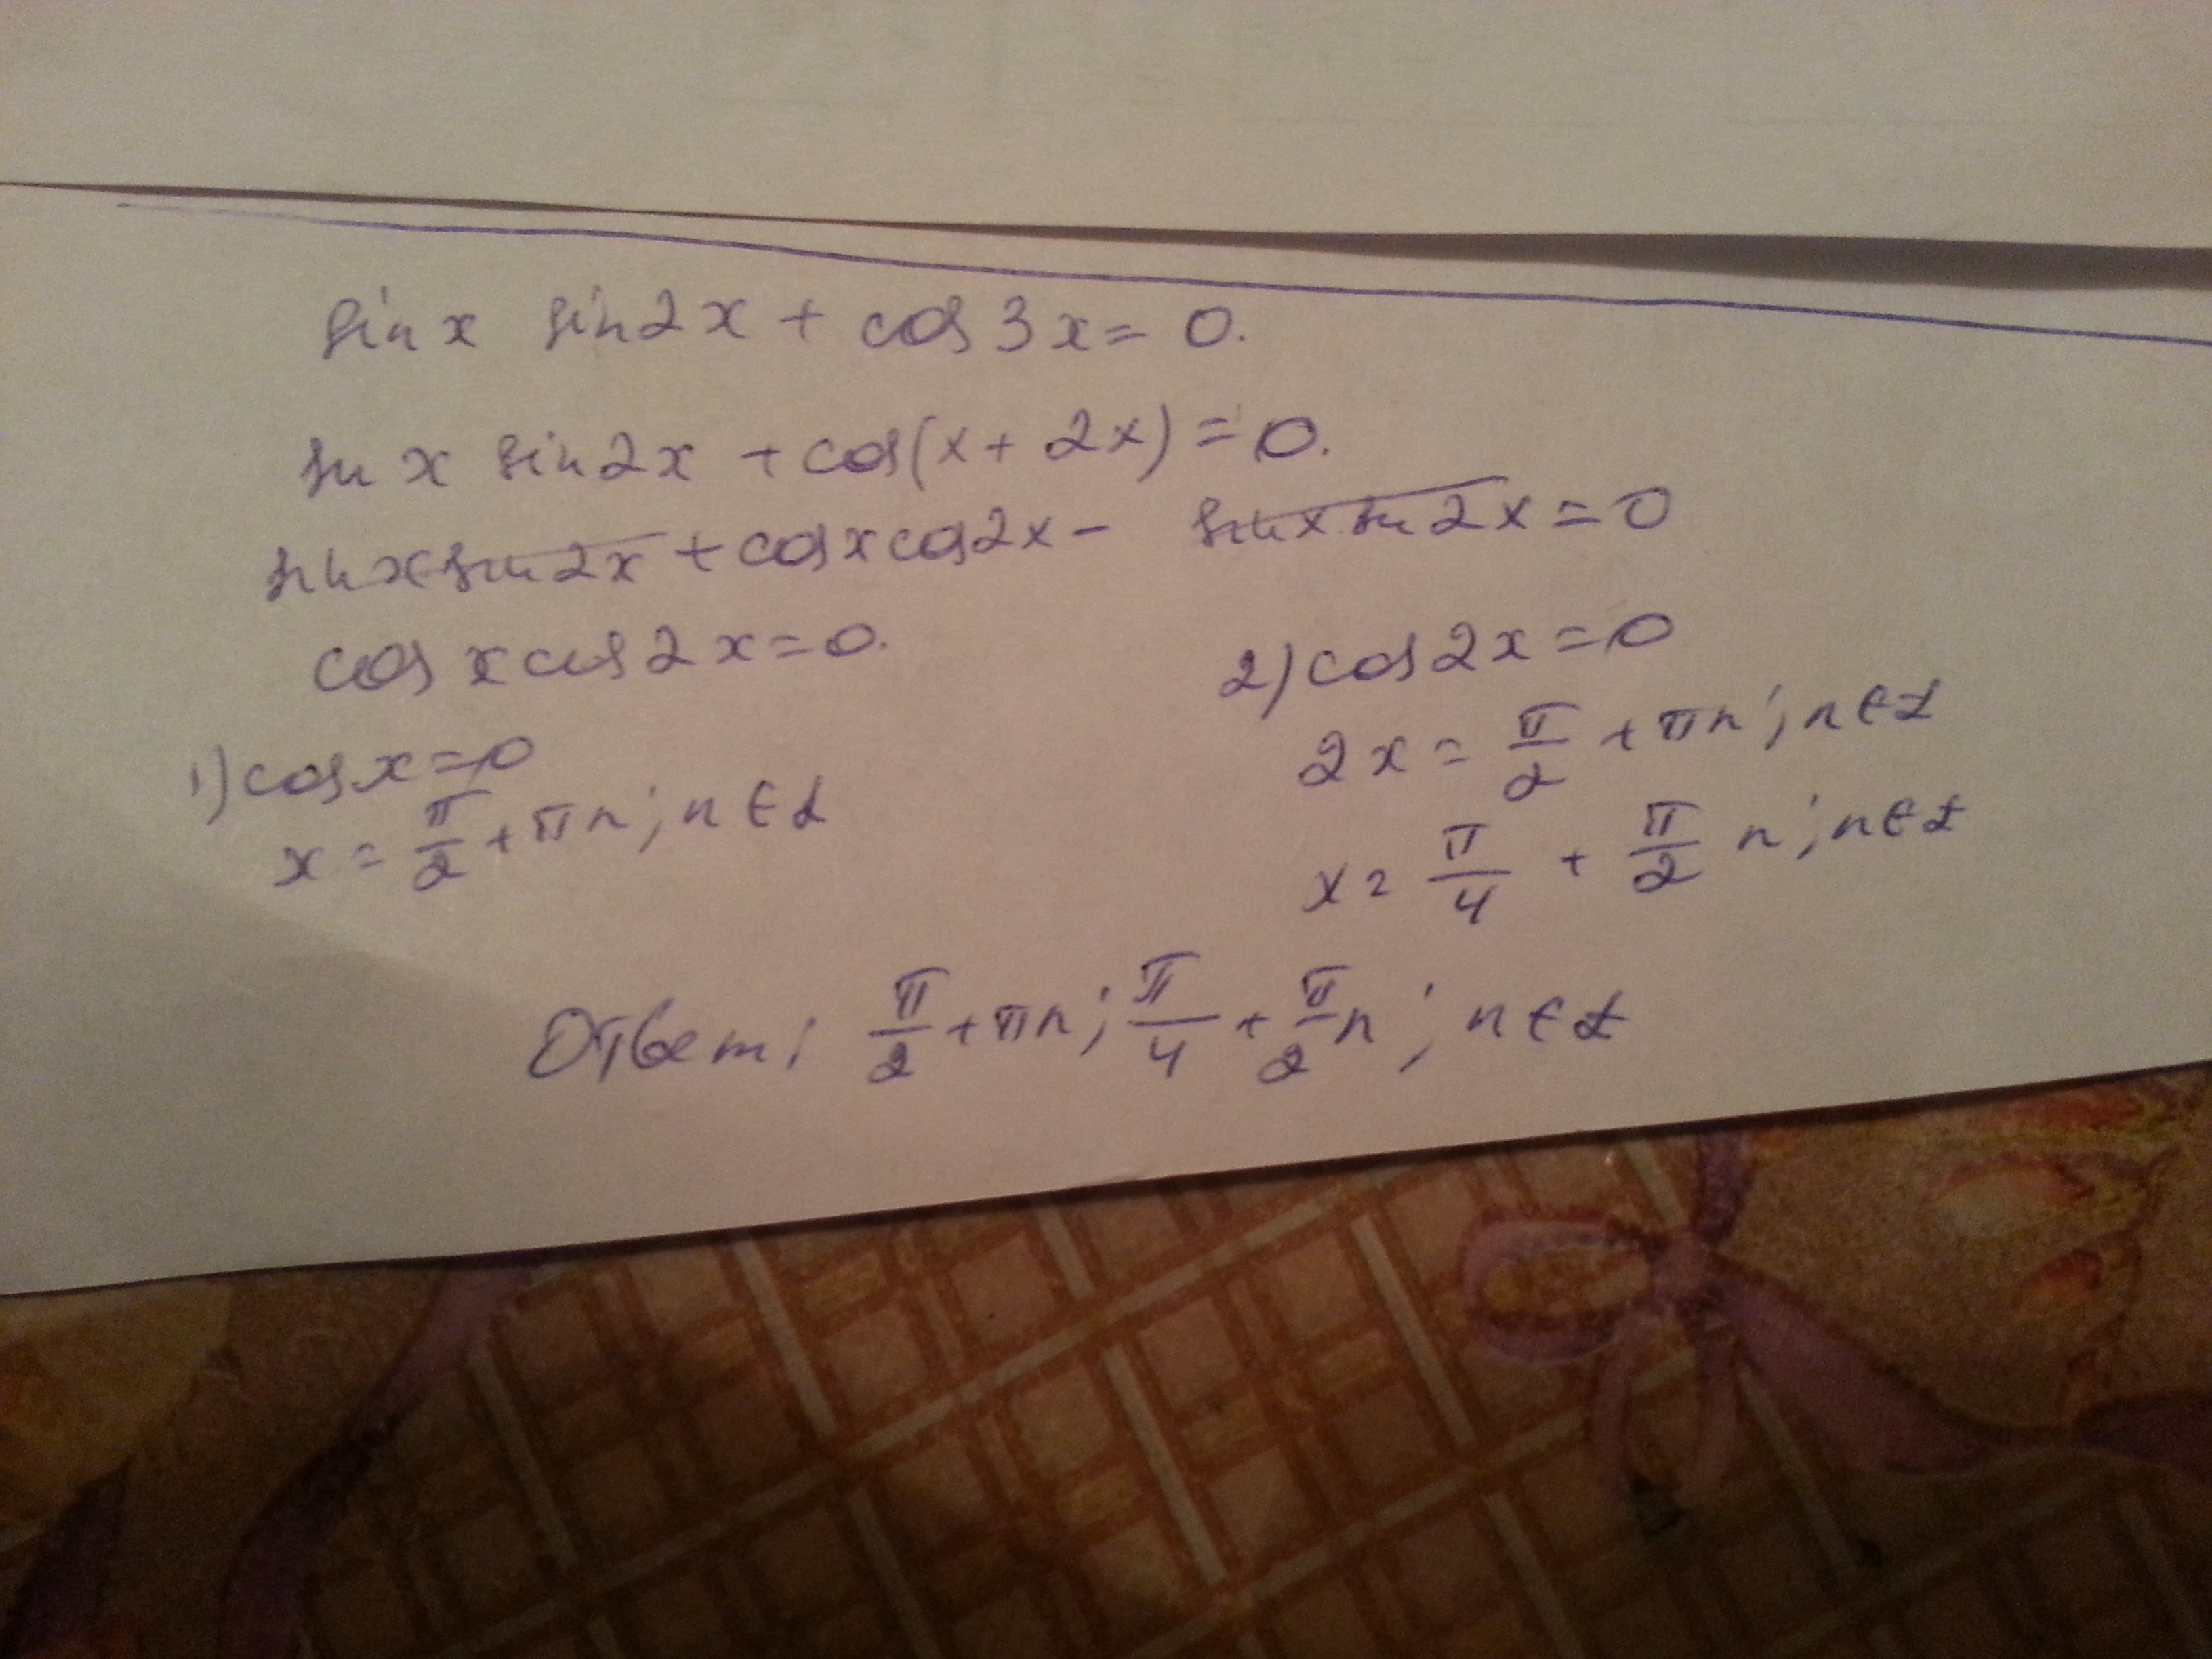 sin x sin2x + cos 3x = 0.
sin x sin2x + cos(x + 2x) = 0.
sin x sin 2x + cos x cos2x - sin x sin 2x = 0
cos x cos 2x = 0.
1) cos x = 0
x = π/2 + πn; n ∈ Z
2) cos 2x = 0
2x = π/2 + πn; n ∈ Z
x = π/4 + π/2 n; n ∈ Z
Ответ: π/2 + πn; π/4 + π/2 n; n ∈ Z